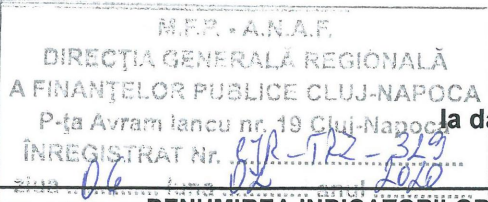 M.F.P. - A.N.A.F.
DIRECȚIA GENERALĂ REGIONALĂ
A FINANȚELOR PUBLICE CLUJ-NAPOCA
P-ța Avram Iancu nr. 19 Cluj-Napoca la da
ÎNREGISTRAT Nr. CJR-TRZ-329
ziua 06 luna 02 anul 2020
DENUMIREA